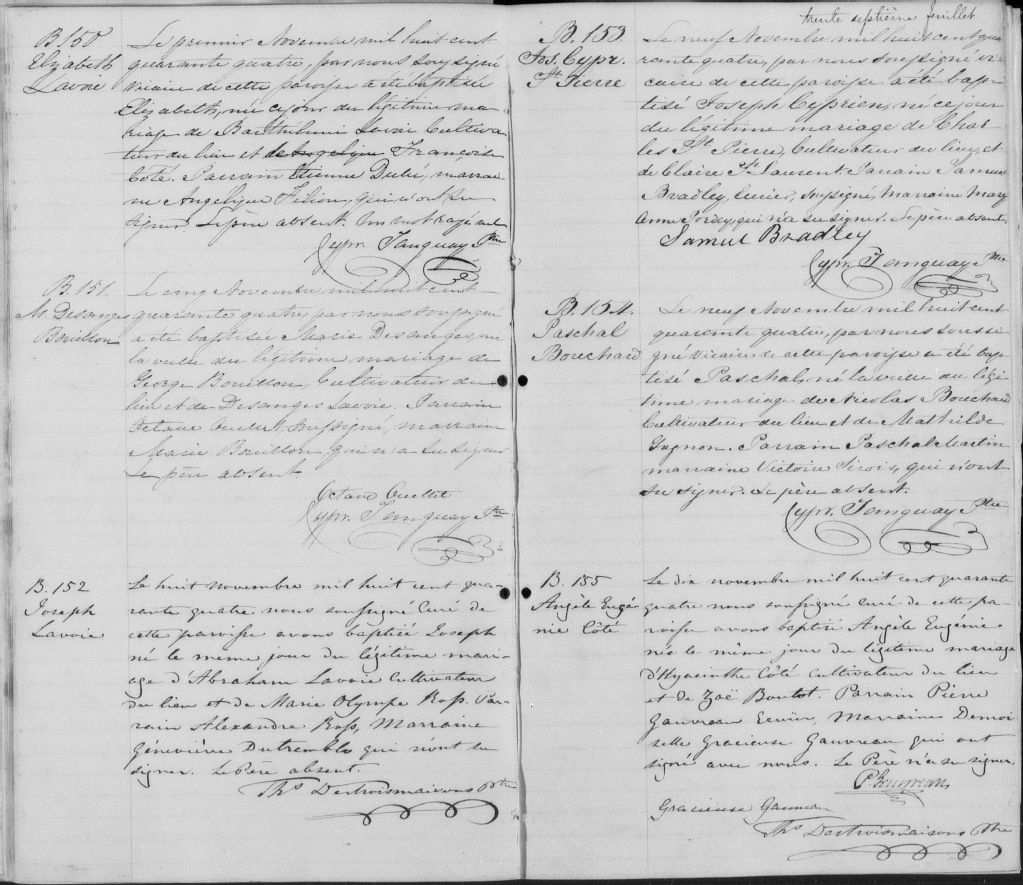 B. 150
Elizabeth
Lavoie
Le premier Novembre mil huit cent
quarante quatre, par nous soussigné
Vicaire de cette paroisse a été baptisée
Elizabeth, née ce jour du légitime ma-
riage de Barthélemi Lavoie Cultiva-
teur du lieu et de Angelique Françoise
Coté. Parrain Etienne Dubé, marrai-
ne Angelique Filion, qui n'ont su
signer. Le père absent. Un mot rayé nul
Cypr. Tanguay Ptre
B. 151.
M. Desanges
Bouillon
Le cinq Novembre mil huit cent
quarante quatre par nous soussigné
a été baptisée Marie Desanges, née
la veille du légitime mariage de
George Bouillon, Cultivateur du
lieu et de Desanges Lavoie. Parrain
Octave Ouellet, soussigné, marraine
Marie Bouillon, qui n'a su signer
Le père absent.
Octave Ouellet
Cypr. Tanguay Ptre
B. 152
Joseph
Lavoie
Le huit novembre mil huit cent qua-
rante quatre, nous soussigné Curé de
cette paroisse avons baptisé Joseph
né le même jour du légitime mari-
age d'Abraham Lavoie Cultivateur
du lieu et de Marie Olympe Ross. Par-
rain Alexandre Ross, Marraine
Géneviève Dutremble qui n'ont su
signer. Le Père absent.
Ths Destroismaisons Ptre
trente septième feuillet
B. 153
Jos. Cypr.
St. Pierre
Le neuf Novembre mil huit cent qua-
rante quatre, par nous soussigné vi-
caire de cette paroisse a été bap-
tisé Joseph Cyprien, né ce jour
du légitime mariage de Char-
les St. Pierre, Cultivateur du lieu, et
de Claire St. Laurent Parrain Samuel
Bradley, Ecuier, soussigné, Marraine Mary
Anne qui n'a su signer. Le père absent.
Samuel Bradley
Cypr. Tanguay Ptre
B. 154.
Paschal
Bouchard
Le neuf Novembre mil huit cent
quarante quatre, par nous soussi-
gné Vicaire de cette paroisse a été bap-
tisé Paschal, né la veille du légi-
time mariage de Nicolas Bouchard
Cultivateur du lieu et de Mathilde
Gagnon. Parrain Paschal Martin
marraine Victoire Sirois, qui n'ont
su signer. Le père absent.
Cypr. Tanguay Ptre
B. 155
Angèle Eugé
nie Côté
Le dix novembre mil huit cent quarante
quatre nous soussigné curé de cette pa-
roisse avons baptisé Angèle Eugénie
née le même jour du légitime mariage
d'Hyacinthe Côté Cultivateur du lieu
et de Zoë Boutot. Parrain Pierre
Gauvreau Ecuier, Marraine Demoi
selle Gracieuse Gauvreau qui ont
signé avec nous. Le Père n'a su signer.
P. Gauvreau
Gracieuse Gauvreau
Ths Destroismaisons Ptre